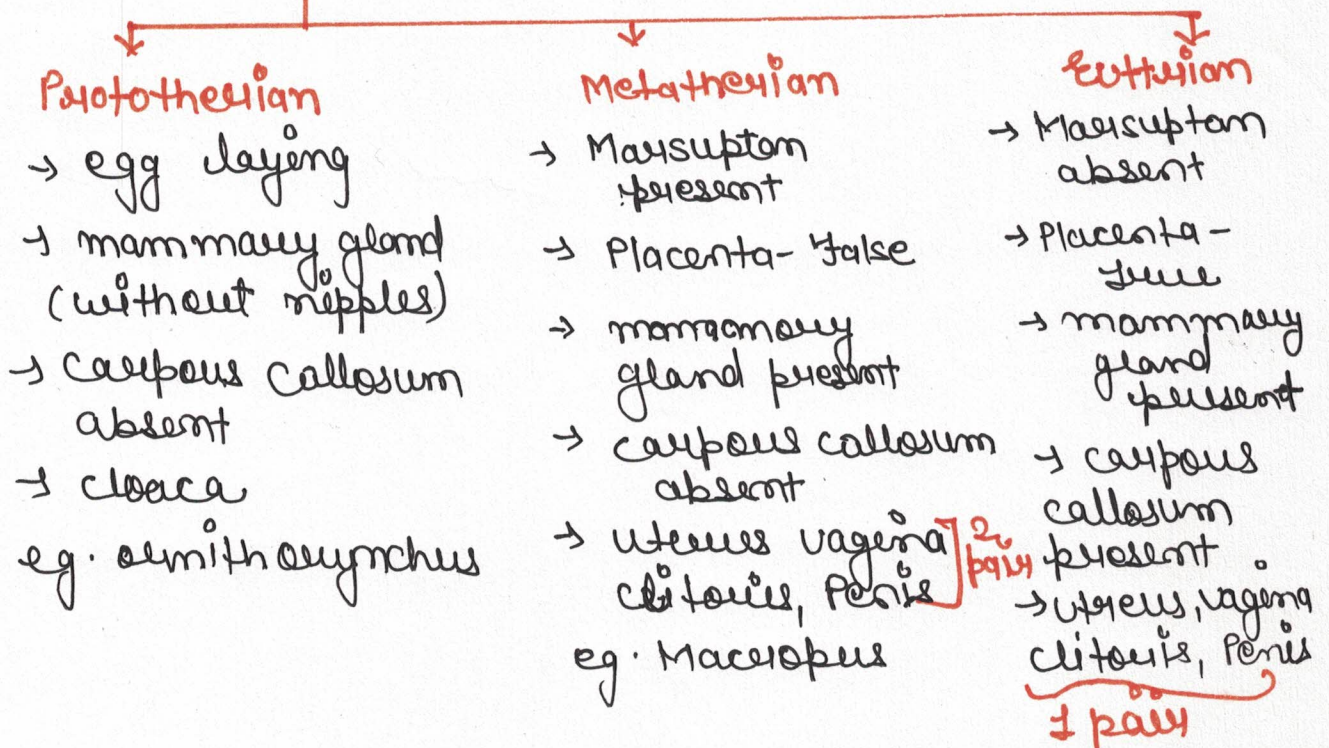 Prototherian
→ egg laying
→ mammary gland
(without nipples)
→ carpous callosum
absent
→ cloaca
eg. ornithorynchus
Metatherian
→ Marsuptom
present
→ Placenta - False
→ mammary
gland present
→ carpous callosum
absent
→ uterus vagina
clitoris, Penis
2 pair
eg. Macropus
Eutherian
→ Marsuptom
absent
→ Placenta -
True
→ mammary
gland
present
→ carpous
callosum
present
→ utreus, vagina
clitoris, Penis
1 pair